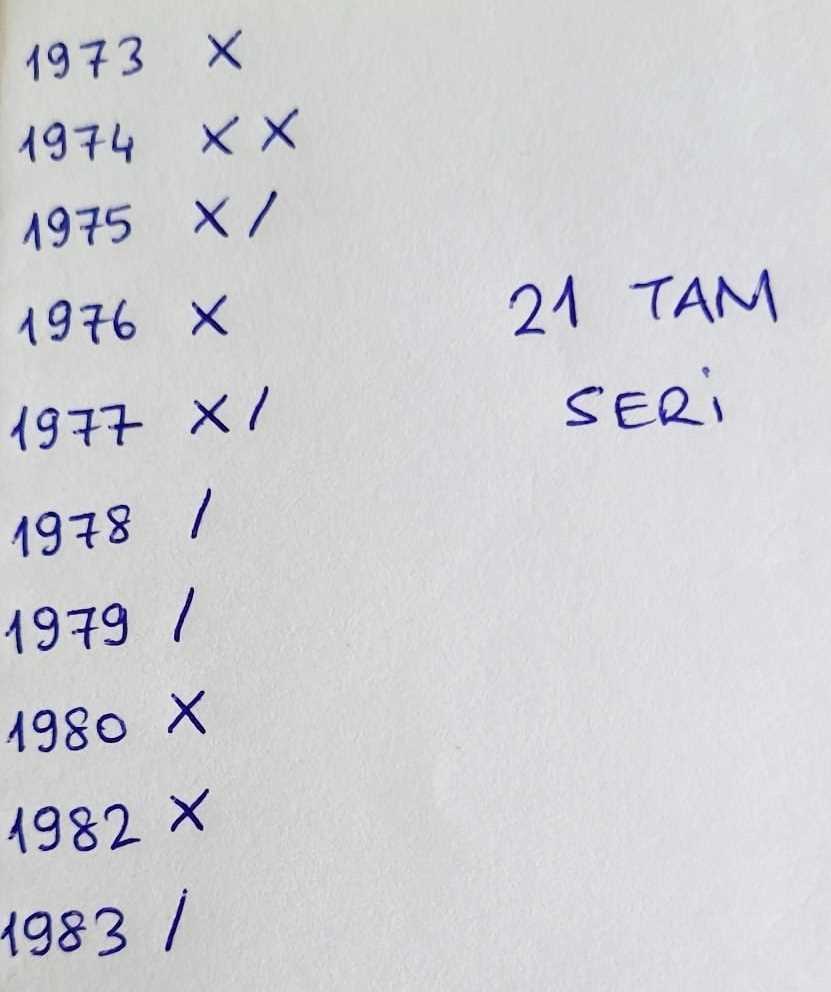 1973 X
1974 X X
1975 X /
1976 X
1977 X /
1978 /
1979 /
1980 X
1982 X
1983 /
21 TAM
SERİ